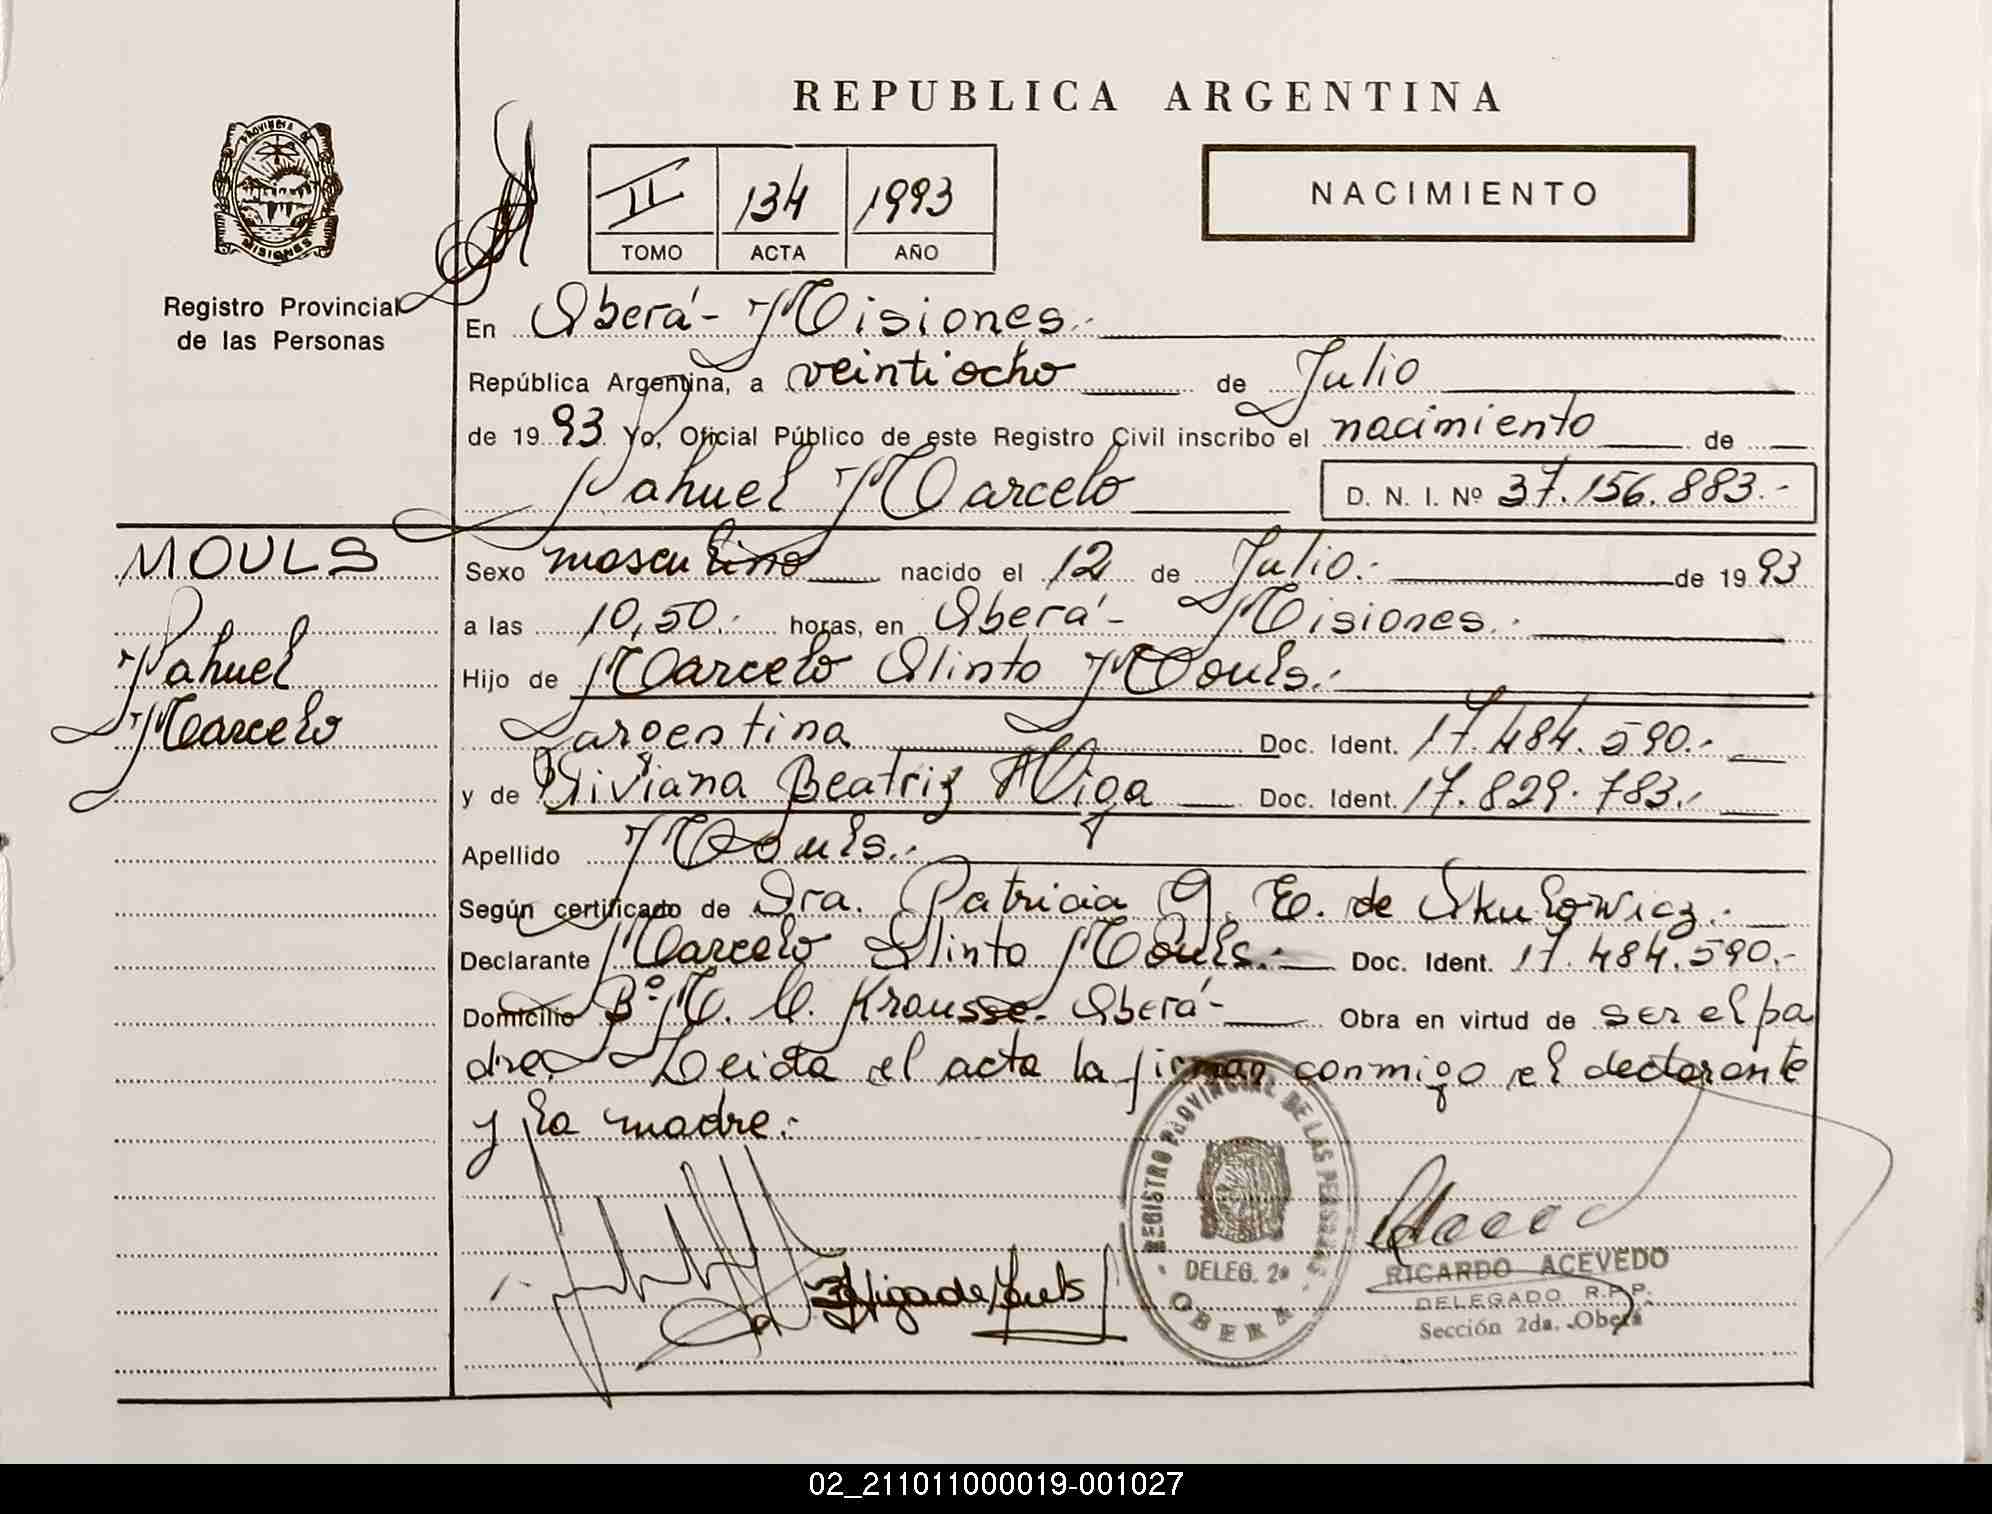 REPUBLICA ARGENTINA
PROVINCIA DE
MISIONES
Registro Provincial
de las Personas
II 134 1993
TOMO ACTA AÑO
NACIMIENTO
En Oberá - Misiones.-
República Argentina, a veintiocho de Julio
de 1993 Yo, Oficial Público de este Registro Civil inscribo el nacimiento de
Nahuel Marcelo D. N. I. Nº 37.156.883.-
MOULS
Nahuel
Marcelo
Sexo masculino nacido el 12 de Julio.- de 1993
a las 10,50.- horas, en Oberá - Misiones.-
Hijo de Marcelo Olinto Mouls.-
argentina Doc. Ident. 17.484.590.-
y de Viviana Beatriz Aliga Doc. Ident. 17.829.783.-
Apellido Mouls.-
Según certificado de Dra. Patricia G. E. de Skulowicz.-
Declarante Marcelo Olinto Mouls.- Doc. Ident. 17.484.590.-
Domicilio Bº M. C. Krausse. Oberá - Obra en virtud de ser el pa
dre. Leida el acta la firman conmigo el declarante
y la madre.-
REGISTRO PROVINCIAL DE LAS PERSONAS
DELEG. 2ª
OBERA
RICARDO ACEVEDO
DELEGADO R.P.P.
Sección 2da. Oberá
02_211011000019-001027